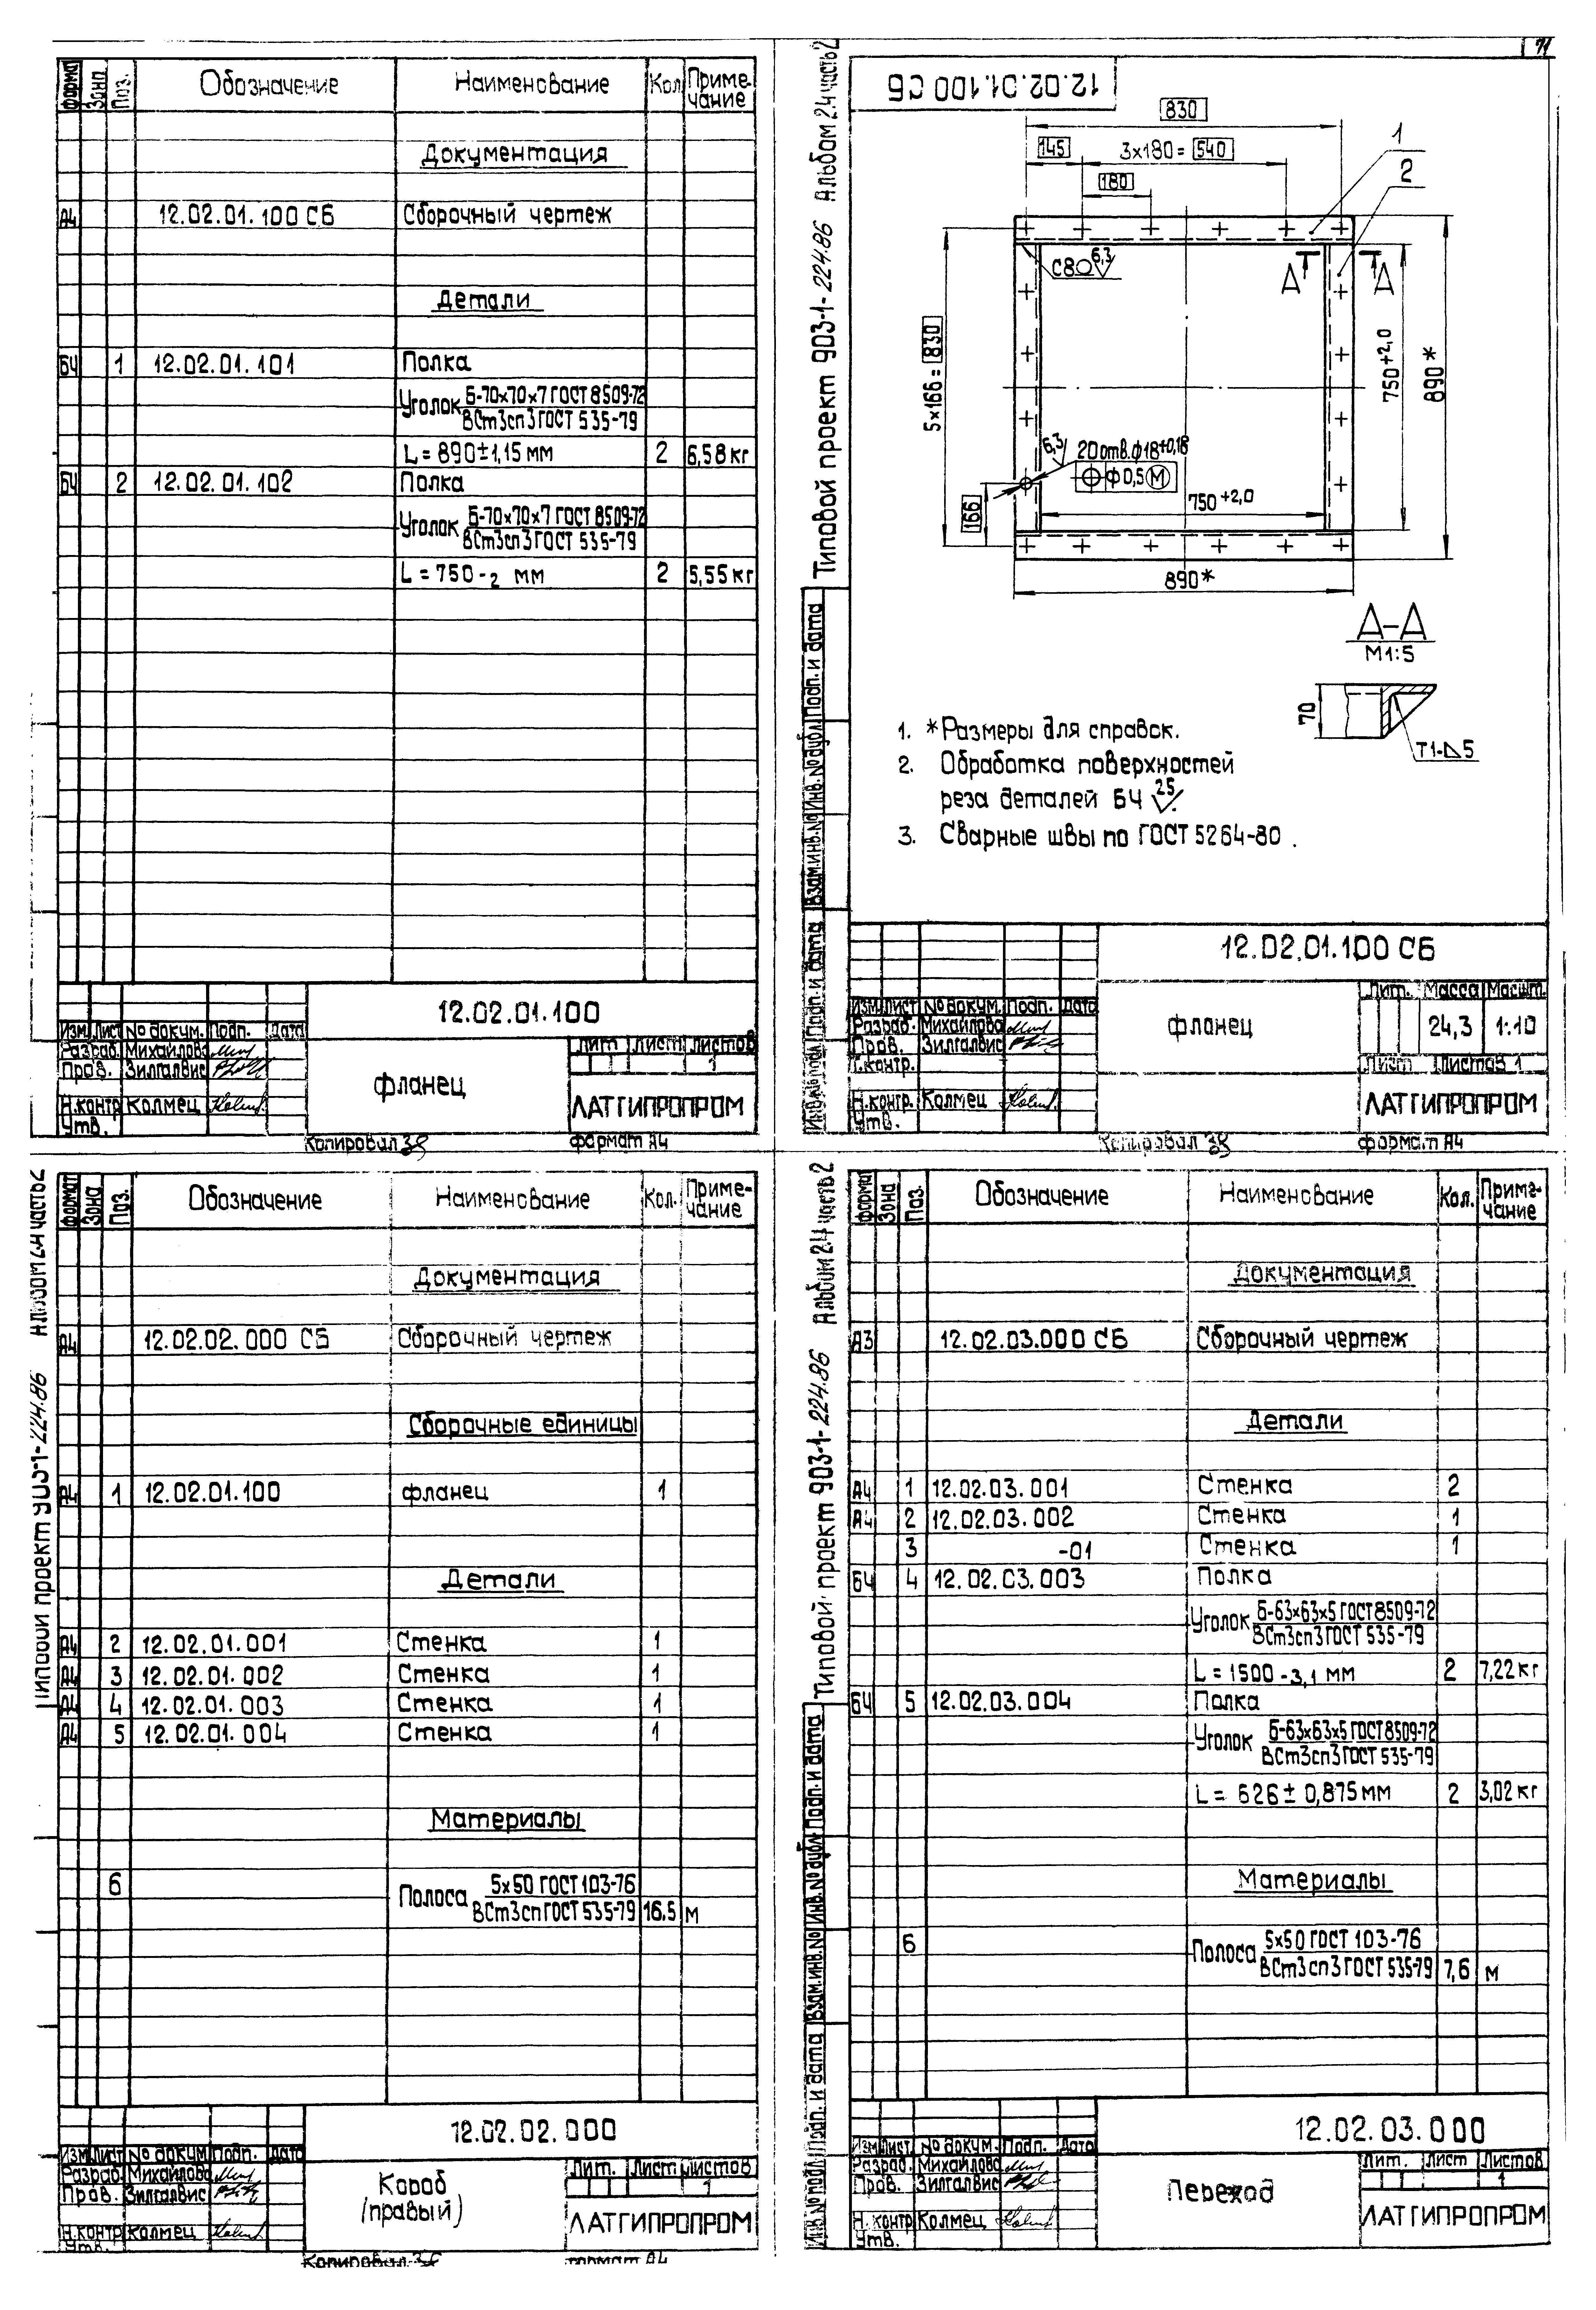 71
Формат Зона Поз. Обозначение Наименование Кол Приме-чание
Документация
А4 12.02.01.100 СБ Сборочный чертеж
Детали
БЧ 1 12.02.01.101 Полка
Уголок Б-70х70х7 ГОСТ 8509-72
ВСт3сп3 ГОСТ 535-79
L = 890±1,15 мм 2 6,58 кг
БЧ 2 12.02.01.102 Полка
Уголок Б-70х70х7 ГОСТ 8509-72
ВСт3сп3 ГОСТ 535-79
L = 750-2 мм 2 5,55 кг
12.02.01.100
Изм. Лист № докум. Подп. Дата
Разраб. Михайлова
Пров. Зилгалвис
Н.контр Колмец
Утв.
фланец
Лит Лист Листов
1
ЛАТГИПРОПРОМ
Копировал
формат А4
Типовой проект 903-1-224.86 Альбом 2.4 часть 2
12.02.01.100 СБ
830
145 3х180= 540
180
1
2
С8 6,3
А А
5х166= 830
750+2,0
890*
6,3
20 отв. ф18+0,18
ф 0,5 М
166
750+2,0
890*
А-А
М1:5
70
Т1-5
1. *Размеры для справок.
2. Обработка поверхностей
реза деталей БЧ 25
3. Сварные швы по ГОСТ 5264-80.
Инв.№ подл Подп. и дата Взам.инв.№ Инв.№ дубл Подп. и дата
12.02.01.100 СБ
Изм. Лист № докум. Подп. Дата
Разраб. Михайлова
Пров. Зилгалвис
Т.контр.
Н.контр. Колмец
Утв.
фланец
Лит. Масса Масшт.
24,3 1:10
Лист Листов 1
ЛАТГИПРОПРОМ
Копировал
формат А4
Типовой проект 903-1-224.86 Альбом 2.4 часть 2
Формат Зона Поз. Обозначение Наименование Кол. Приме-чание
Документация
А4 12.02.02.000 СБ Сборочный чертеж
Сборочные единицы
А4 1 12.02.01.100 фланец 1
Детали
А4 2 12.02.01.001 Стенка 1
А4 3 12.02.01.002 Стенка 1
А4 4 12.02.01.003 Стенка 1
А4 5 12.02.01.004 Стенка 1
Материалы
6 Полоса 5х50 ГОСТ 103-76
ВСт3сп ГОСТ 535-79 16.5 м
12.02.02.000
Изм. Лист № докум. Подп. Дата
Разраб. Михайлова
Пров. Зилгалвис
Н.контр Колмец
Утв.
Короб
(правый)
Лит. Лист Листов
1
ЛАТГИПРОПРОМ
Копировал
формат А4
Типовой проект 903-1-224.86 Альбом 2.4 часть 2
Формат Зона Поз. Обозначение Наименование Кол. Приме-чание
Документация
А3 12.02.03.000 СБ Сборочный чертеж
Детали
А4 1 12.02.03.001 Стенка 2
А4 2 12.02.03.002 Стенка 1
3 -01 Стенка 1
БЧ 4 12.02.03.003 Полка
Уголок Б-63х63х5 ГОСТ 8509-72
ВСт3сп3 ГОСТ 535-79
L = 1500-3,1 мм 2 7,22 кг
БЧ 5 12.02.03.004 Полка
Уголок Б-63х63х5 ГОСТ 8509-72
ВСт3сп3 ГОСТ 535-79
L = 626± 0,875 мм 2 3,02 кг
Материалы
6 Полоса 5х50 ГОСТ 103-76
ВСт3сп3 ГОСТ 535-79 7,6 м
Инв.№ подл Подп. и дата Взам.инв.№ Инв.№ дубл. Подп. и дата
12.02.03.000
Изм. Лист. № докум. Подп. Дата
Разраб. Михайлова
Пров. Зилгалвис
Н.контр Колмец
Утв.
Переход
Лит. Лист Листов
1
ЛАТГИПРОПРОМ